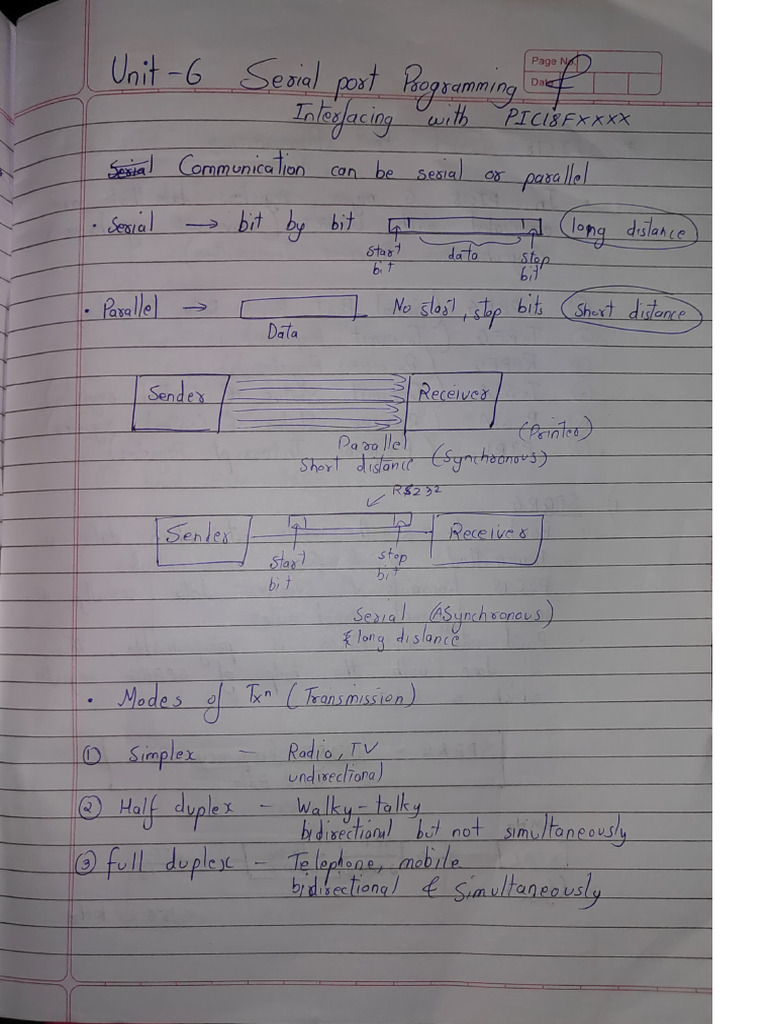 Page No.
Date
Unit - 6 Serial port Programming
Interfacing with PIC18FXXXX
Serial Communication can be serial or parallel
• Serial → bit by bit long distance
start bit data stop bit
• Parallel → No start, stop bits Short distance
Data
Sender Receiver
(Printer)
Parallel
Short distance (Synchronous)
RS232
Sender Receiver
start bit stop bit
Serial (ASynchronous)
& long distance
• Modes of Txn (Transmission)
① Simplex - Radio, TV
undirectional
② Half duplex - Walky-talky
bidirectional but not simultaneously
③ full duplex - Telephone, mobile
bidirectional & Simultaneously